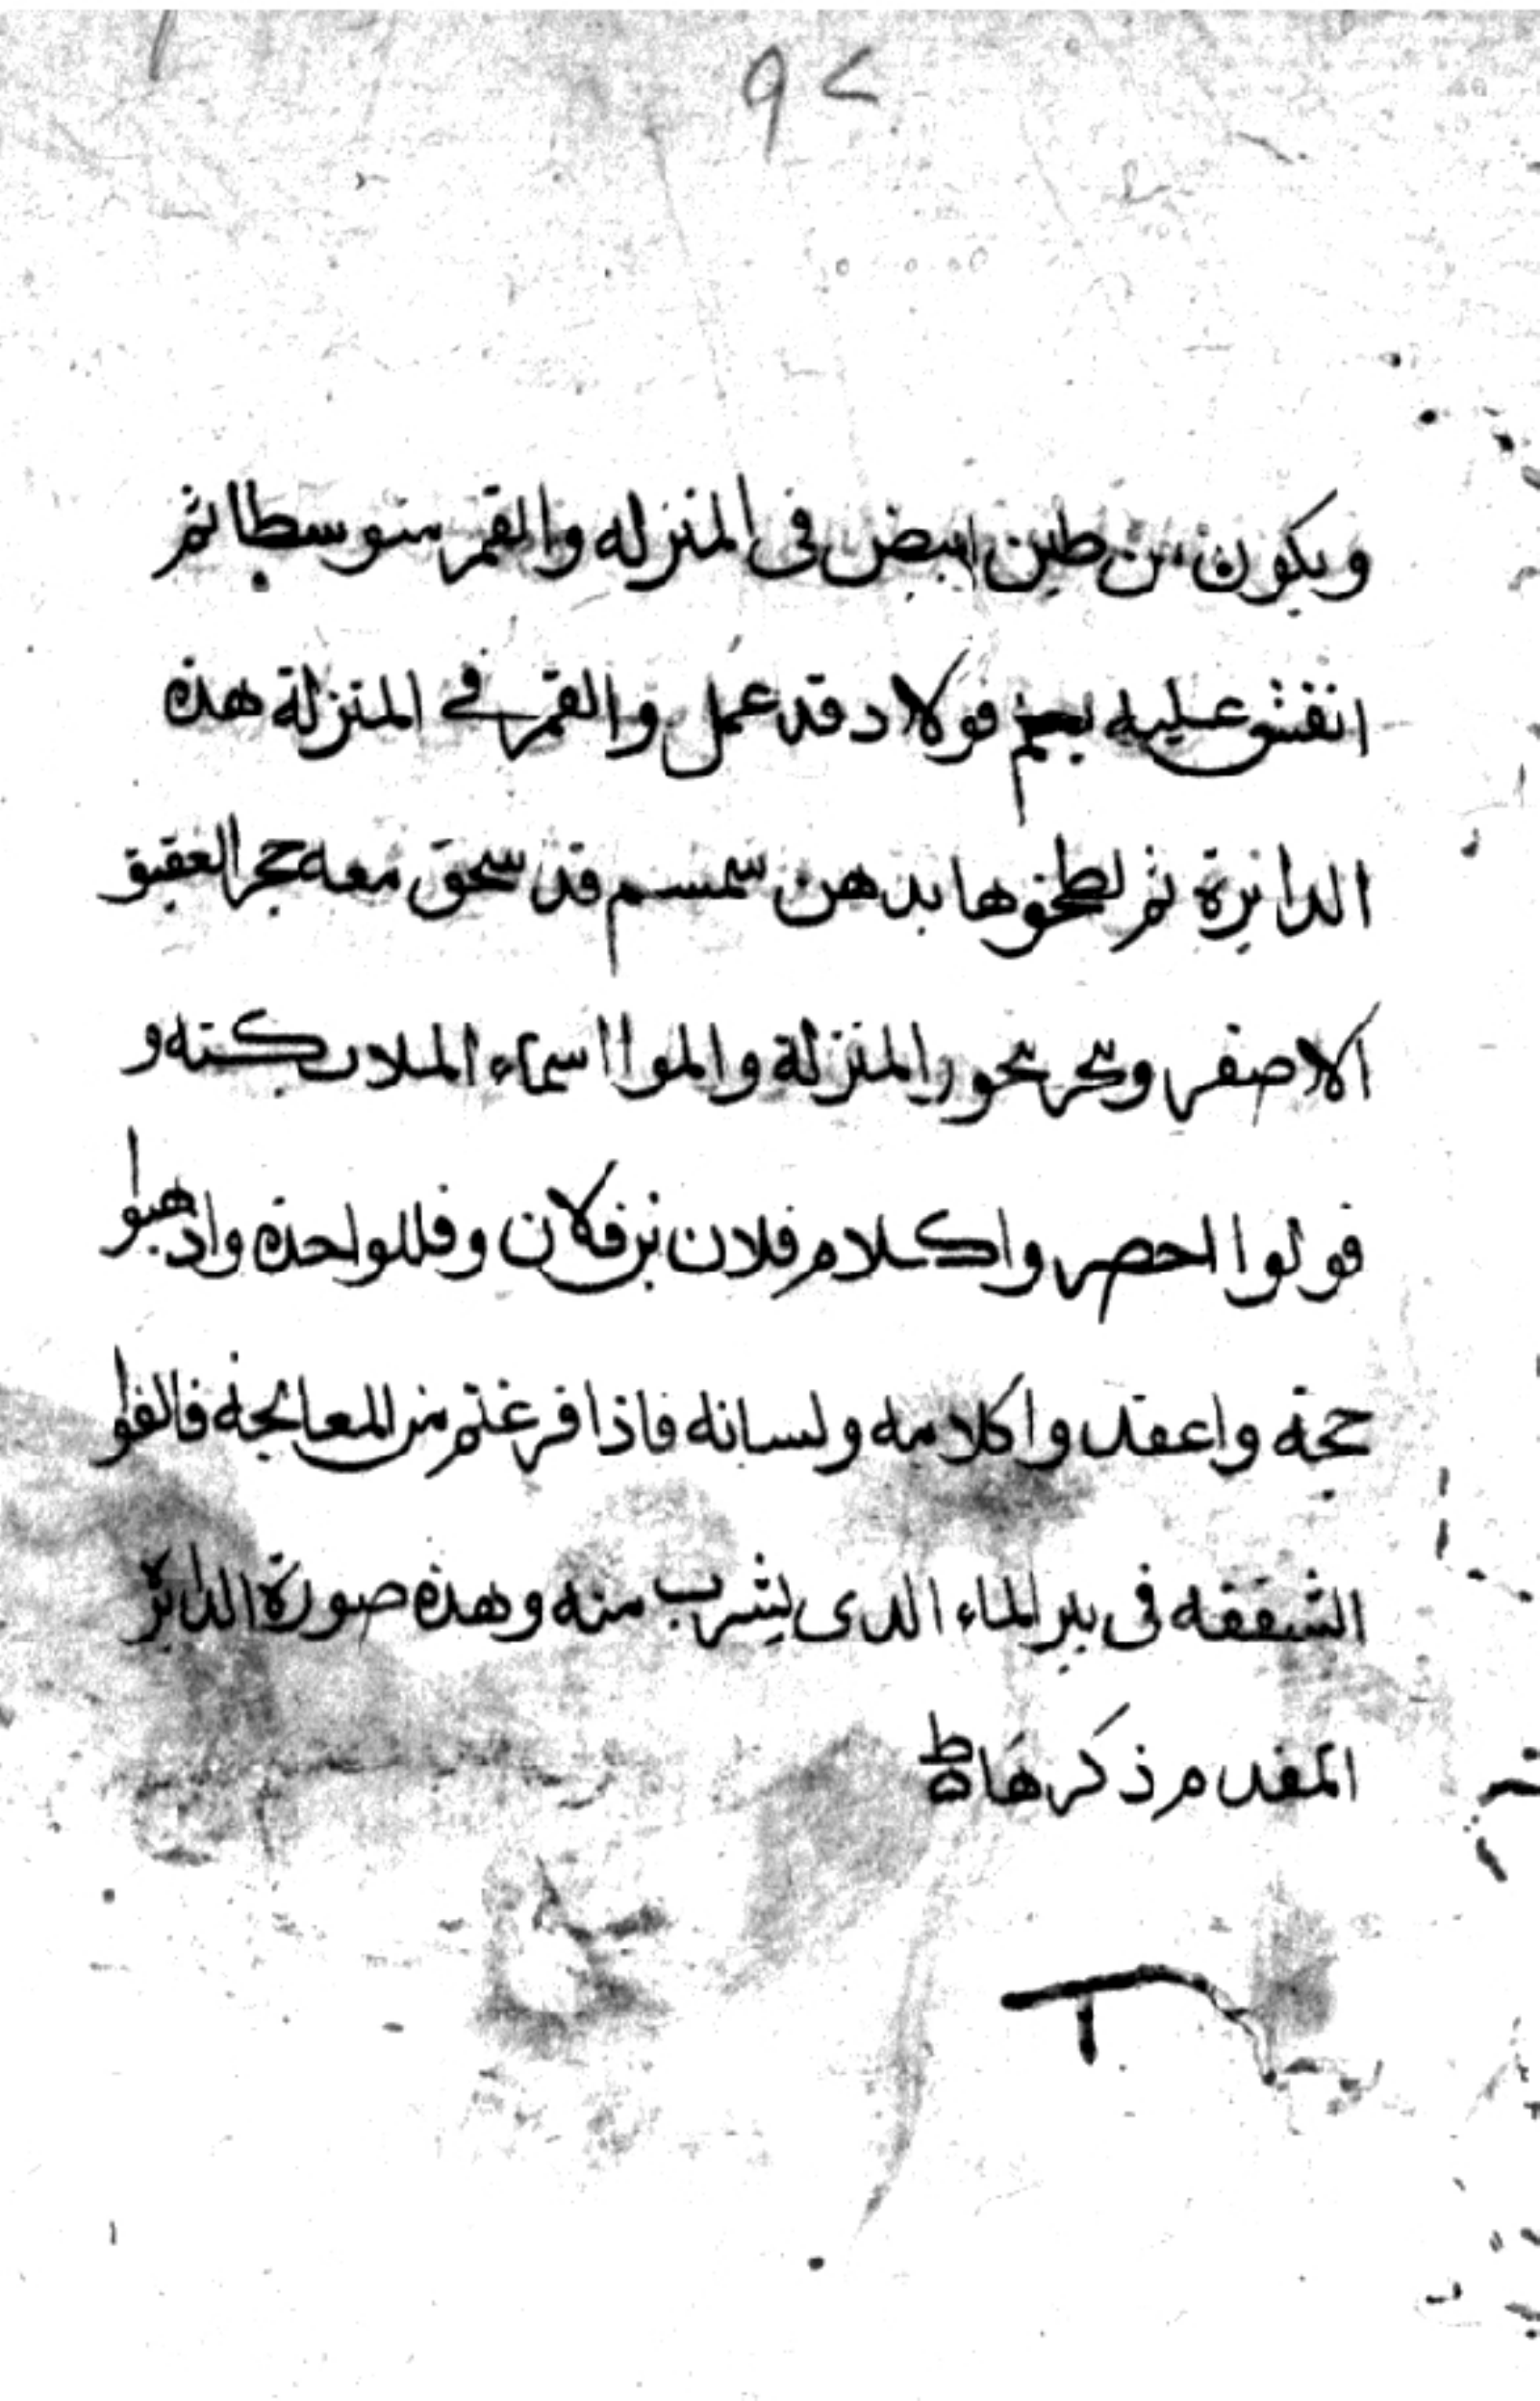 ٩٢
ويكون من طين ابيض فى المنزله والقمر متوسطا ثم
انقش عليه فولاد قد عمل والقمر في المنزلة هذه
الدايرة ثم لطخوها بدهن سمسم قد سحق معه حجر العقيق
الاصفر وبخر بخور المنزلة والموا اسماء الملايكته و
قولوا احصروا كلام فلان بن فلان وفللوا حده وادهبوا
حجته واعقدوا كلامه ولسانه فاذا فرغتم من المعالجة فالقوا
الشققه فى بير الماء الدى يشرب منه وهذه صورة الدايرة
المقدم ذكرها